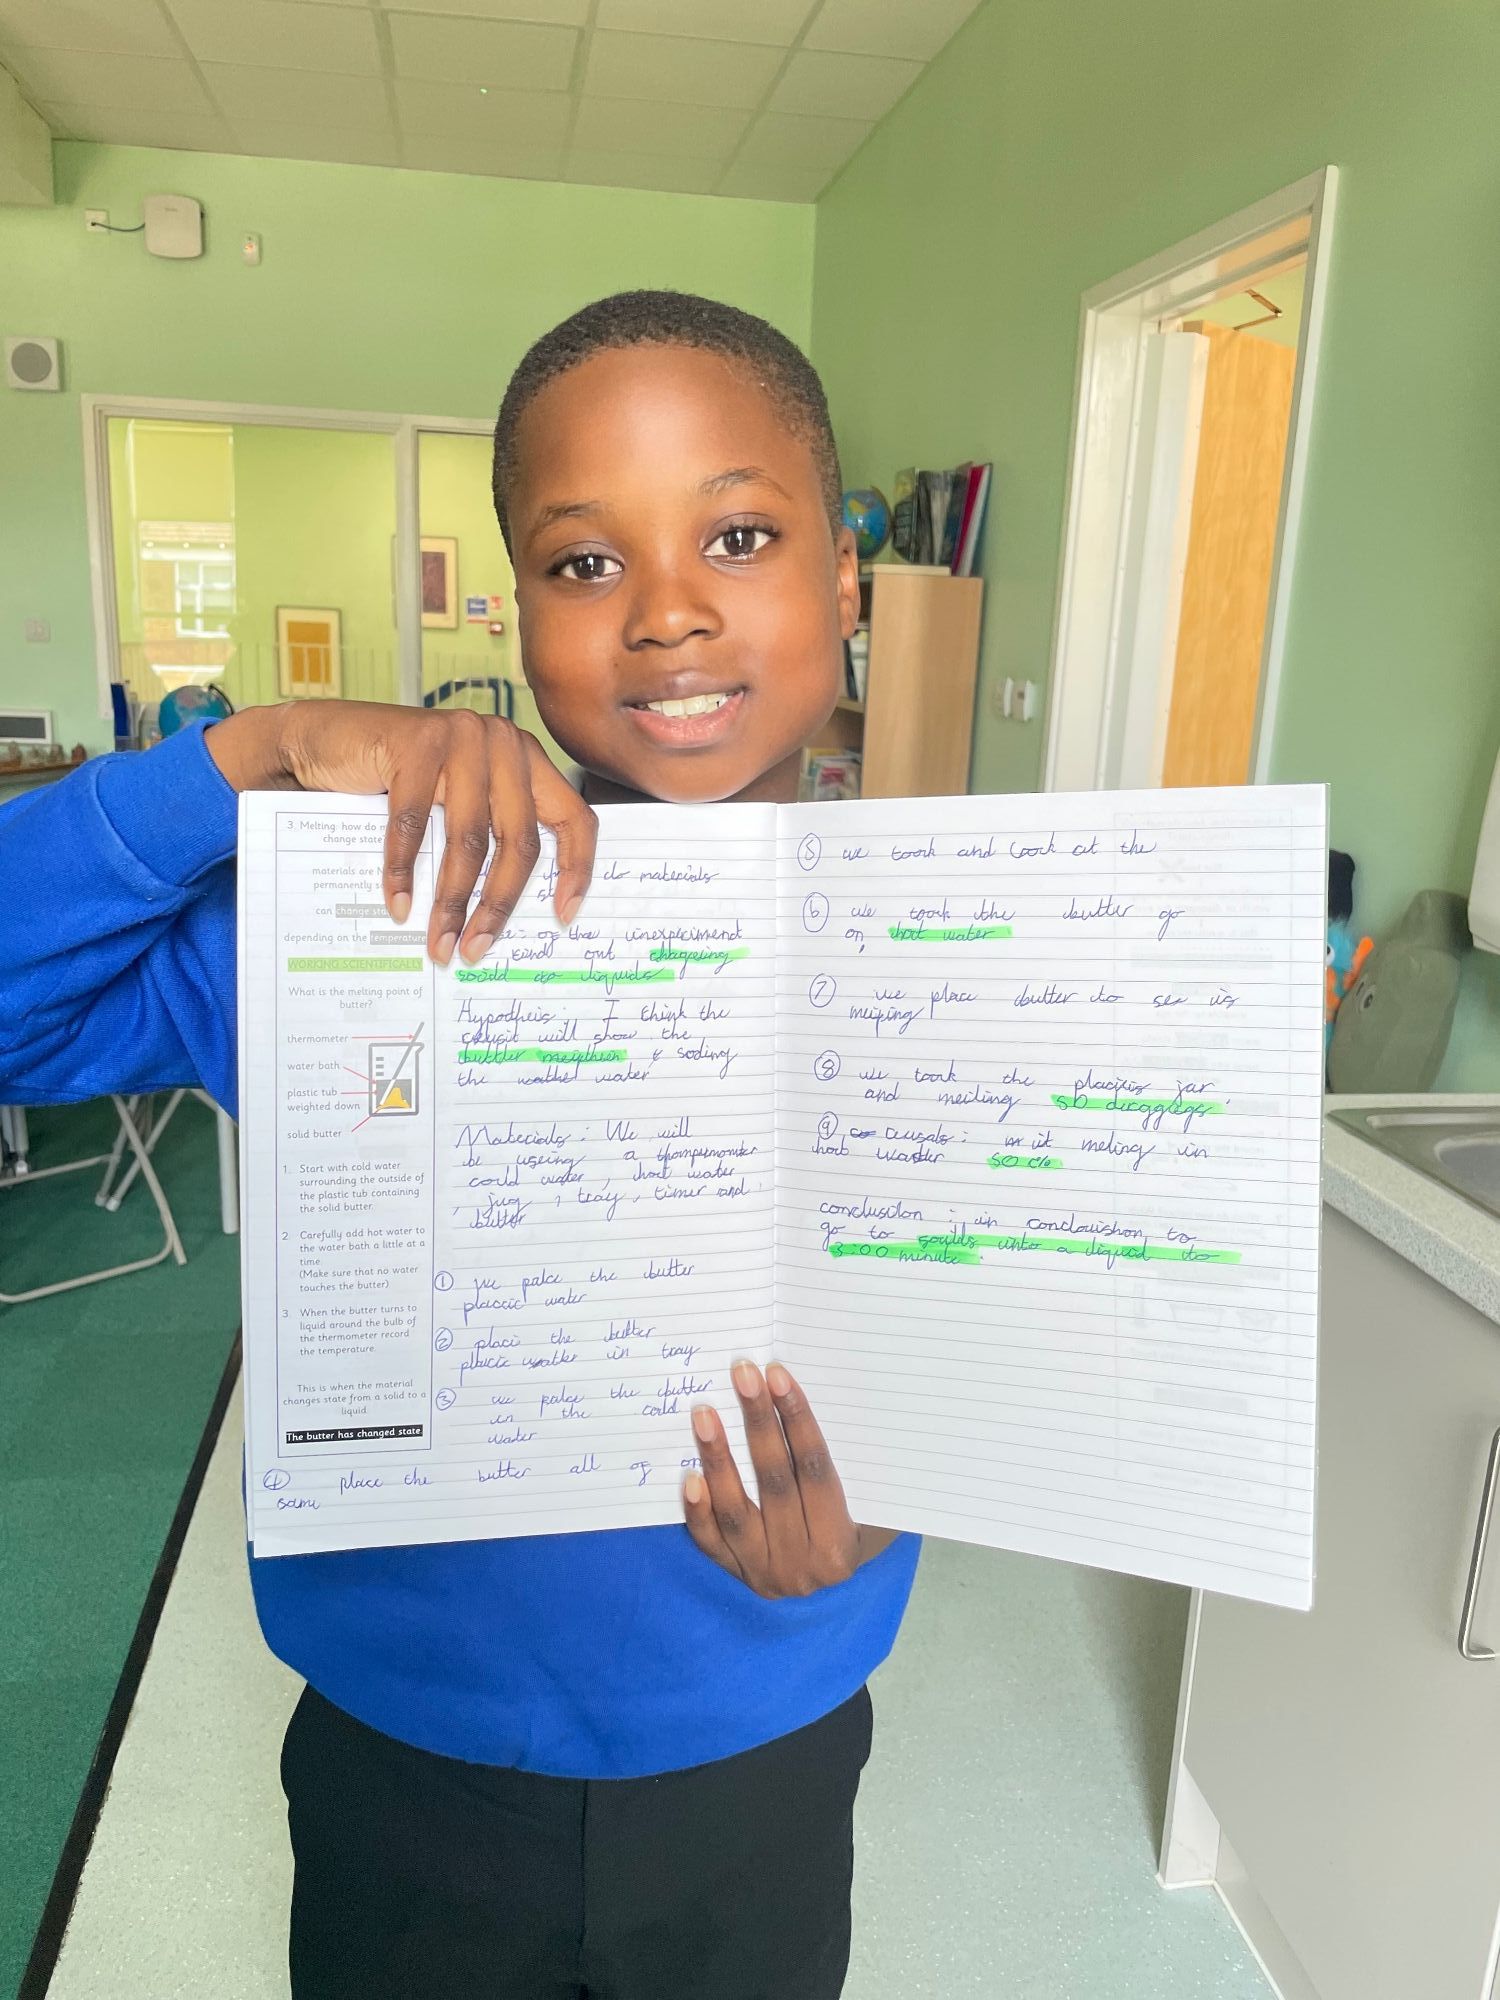 3. Melting: how do
change state
materials are
permanently
can change
depending on the temperature
WORKING SCIENTIFICALLY
What is the melting point of
butter?
thermometer
water bath
plastic tub
weighted down
solid butter
1. Start with cold water
surrounding the outside of
the plastic tub containing
the solid butter.
2. Carefully add hot water to
the water bath a little at a
time.
(Make sure that no water
touches the butter)
3. When the butter turns to
liquid around the bulb of
the thermometer record
the temperature.
This is when the material
changes state from a solid to a
liquid.
The butter has changed state.
do materials
of the inexperiment
out chageing
soidd liquids
Hypotheis: I think the
will show the
buttler & soding
the water
Materials: We will
be useing a
could water, hot water
, jug, tray, timer and
butter
① we palce the butter
placcic water
② placi the butter
in tray
③ we palce the butter
in the cold
water
④ place the butter all of on
sami
⑤ we toork and loork at the
⑥ we toork the butter go
on, hot water
⑦ we place butter to see is
⑧ we toork the jar,
and melting 50
⑨ : it meling in
hot 50 c%
conclusion : in conclouishon to
go to soulds into a liquid to
3:00 minute.